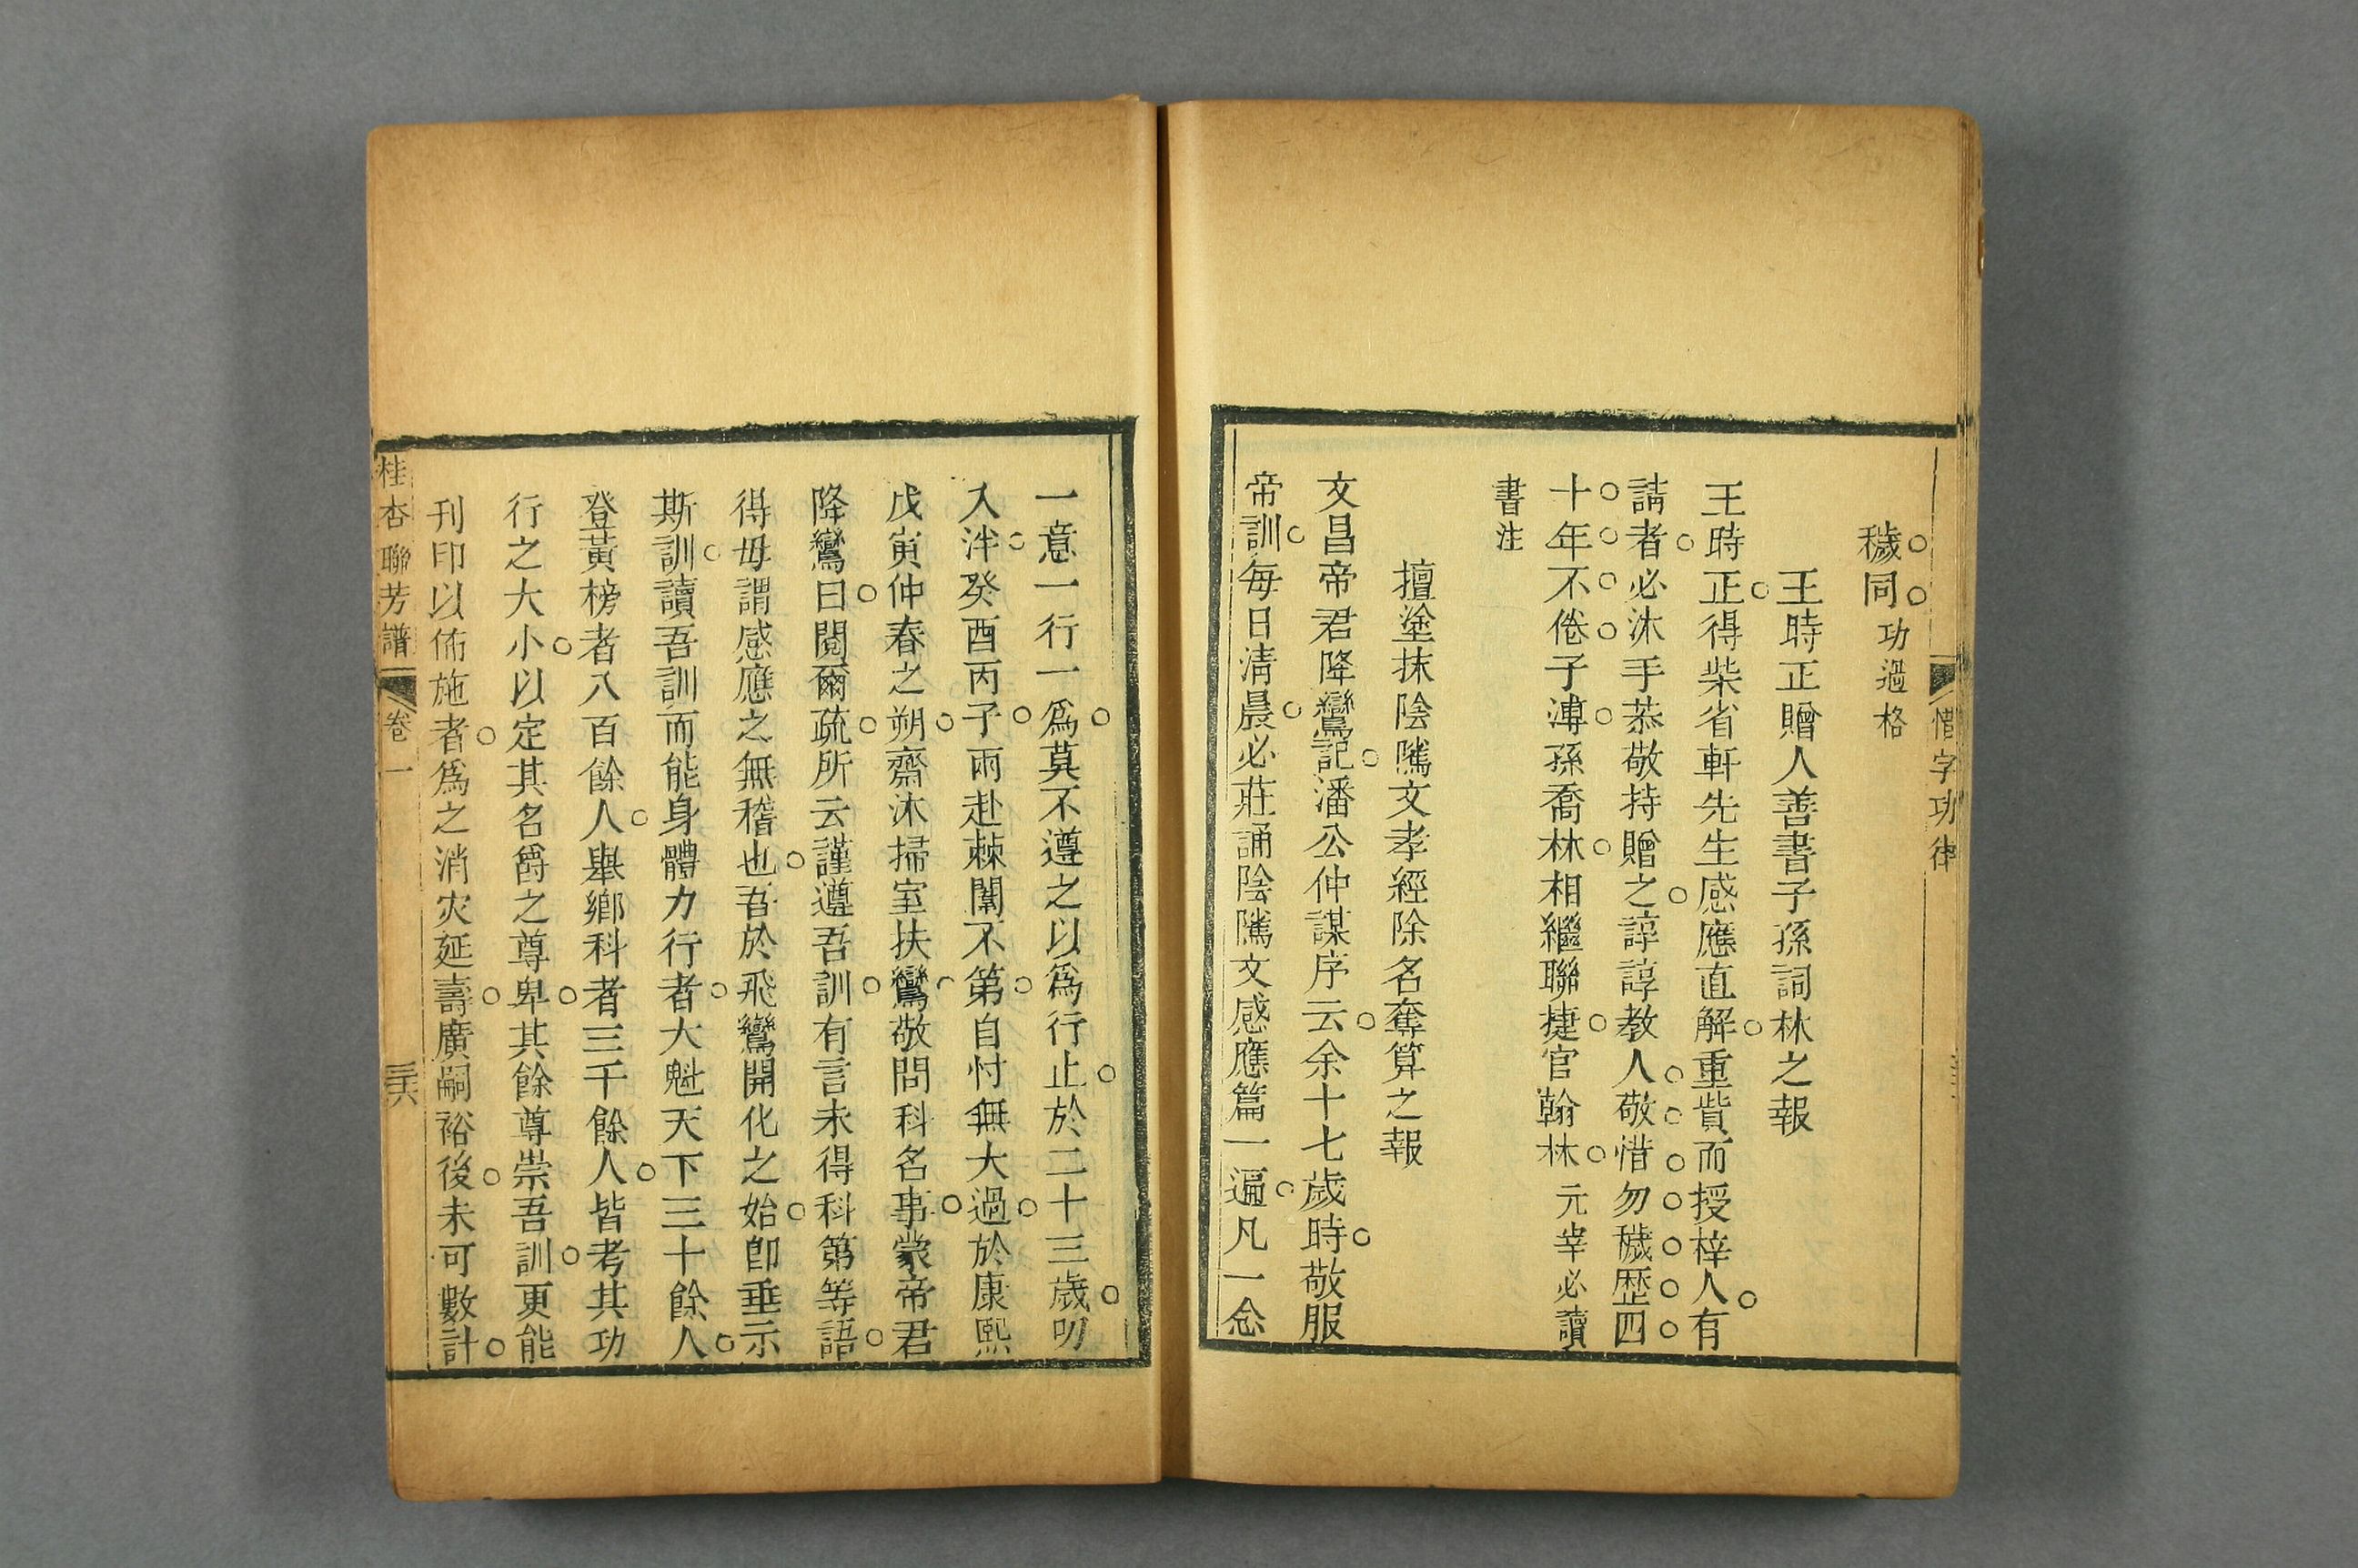 惜字功律
穢同功過格
王時正贈人善書子孫詞林之報
王時正得柴省軒先生感應直解重貲而授梓人有
請者必沐手恭敬持贈之諄諄教人敬惜勿穢歷四
十年不倦子漙孫喬林相繼聯捷官翰林元宰必讀
書注
擅塗抹陰隲文孝經除名奪算之報
文昌帝君降鸞記潘公仲謀序云余十七歲時敬服
帝訓每日清晨必莊誦陰隲文感應篇一遍凡一念
一意一行一爲莫不遵之以爲行止於二十三歲叨
入泮癸酉丙子兩赴棘闈不第自忖無大過於康熙
戊寅仲春之朔齋沐掃室扶鸞敬問科名事蒙帝君
降鸞曰閱爾疏所云謹遵吾訓有言未得科第等語
得毋謂感應之無稽也吾於飛鸞開化之始卽垂示
斯訓讀吾訓而能身體力行者大魁天下三十餘人
登黃榜者八百餘人舉鄉科者三千餘人皆考其功
行之大小以定其名爵之尊卑其餘尊崇吾訓更能
刊印以佈施者爲之消灾延壽廣嗣裕後未可數計
桂杏聯芳譜 卷一 三六